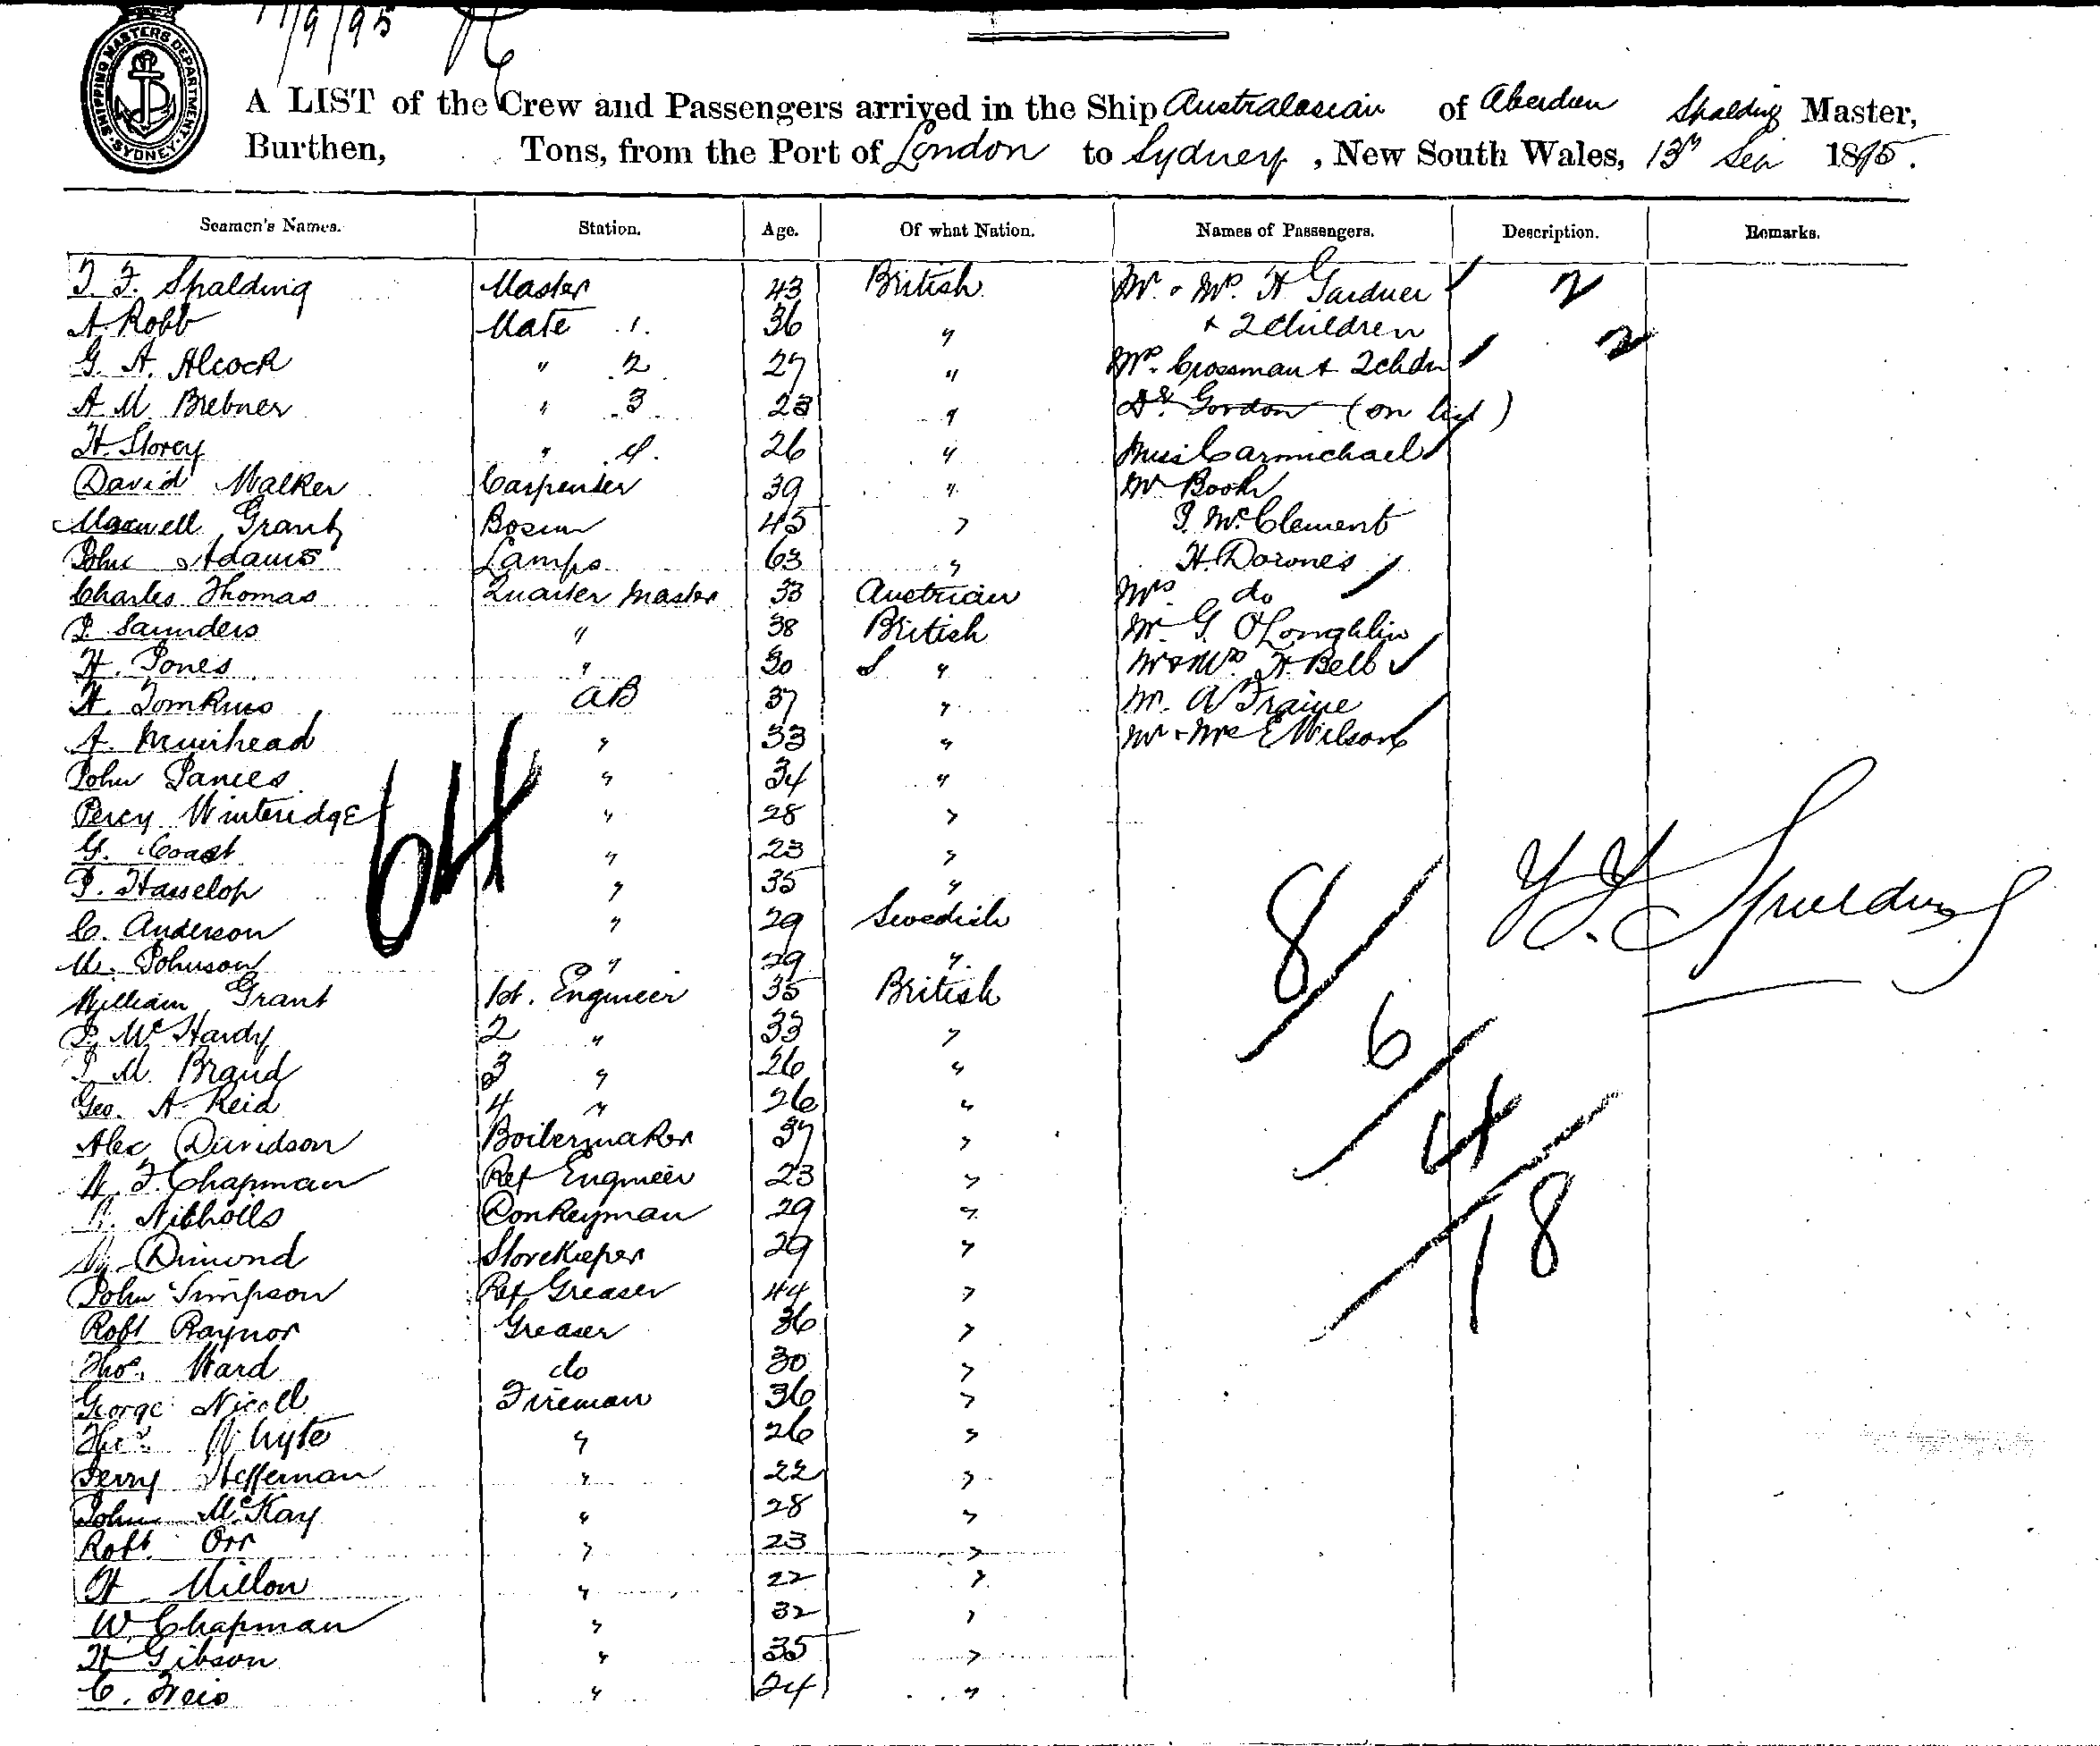 17/9/95
SHIPPING MASTERS DEPARTMENT SYDNEY
A LIST of the Crew and Passengers arrived in the Ship Australasian of Aberdeen Spalding Master,
Burthen, Tons, from the Port of London to Sydney, New South Wales, 13th Sep 1895.
Seamen's Names. Station. Age. Of what Nation. Names of Passengers. Description. Remarks.
T. F. Spalding Master 43 British Mr. & Mrs. H Gardner 2
A. Robb Mate 1. 36 " + 2 Children 2
G. A. Alcock " 2 27 " Mrs. Crossman + 2 chdn
A M Brebner " 3 23 " Dr. Gordon (on list)
H. Storey " 4. 26 " Miss Carmichael
David Walker Carpenter 39 " Mr Booth
Maxwell Grant Bosun 45 " J. McClement
John Adams Lamps 63 " H. Downes
Charles Thomas Quarter Master 33 Austrian Mrs do
J. Saunders " 38 British Mr. G. O'Loughlin
H. Jones " 30 " Mr & Mrs H Bell
H. Tomkins AB 37 " Mr. A Fraine
A. Muirhead " 33 " Mr & Mrs E Wilson
John James " 34 "
Percy Winteridge " 28 "
G. Coast " 23 "
J. Hasselop " 35 "
C. Anderson " 29 Swedish
M. Johnson " 29 "
William Grant 1st. Engineer 35 British
J. McHardy 2 " 33 "
J M. Brand 3 " 26 "
Geo. A. Reid 4 " 26 "
Alex Davidson Boilermaker 37 "
F. Chapman Ref Engineer 23 "
Nicholls Donkeyman 29 "
Dimond Storekeeper 29 "
John Simpson Ref Greaser 44 "
Robt Raynor Greaser 36 "
Thos. Ward do 30 "
George Nicoll Fireman 36 "
Thos. Whyte " 26 "
Jerry Heffernan " 22 "
John McKay " 28 "
Robt. Orr " 23 "
H Millon " 22 "
W. Chapman " 32 "
H Gibson " 35 "
C. Weis " 24 "
64
8
6
4
18
T. F. Spalding